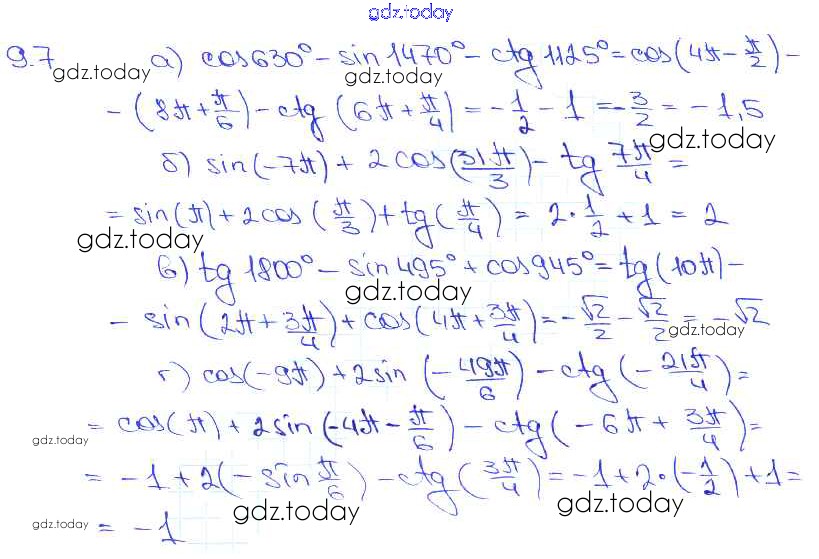 gdz.today
9.7 а) cos630° - sin1470° - ctg1125° = cos(4π - π/2) -
gdz.today gdz.today
- (8π + π/6) - ctg(6π + π/4) = -1/2 - 1 = -3/2 = -1,5
gdz.today
б) sin(-7π) + 2cos(31π/3) - tg 7π/4 =
= sin(π) + 2cos(π/3) + tg(π/4) = 2·1/2 + 1 = 2
gdz.today
в) tg1800° - sin495° + cos945° = tg(10π) -
gdz.today
- sin(2π + 3π/4) + cos(4π + 3π/4) = -√2/2 - √2/2 = -√2
gdz.today
г) cos(-9π) + 2sin(-49π/6) - ctg(-21π/4) =
= cos(π) + 2sin(-4π - π/6) - ctg(-6π + 3π/4) =
gdz.today
= -1 + 2(-sin π/6) - ctg(3π/4) = -1 + 2·(-1/2) + 1 =
gdz.today gdz.today gdz.today
= -1